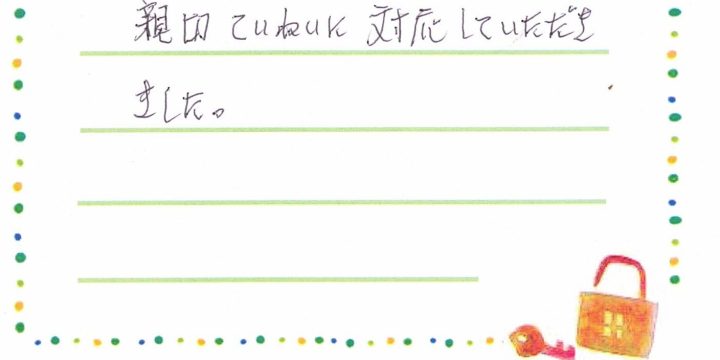 親切 ていねいに 対応していただき
ました。